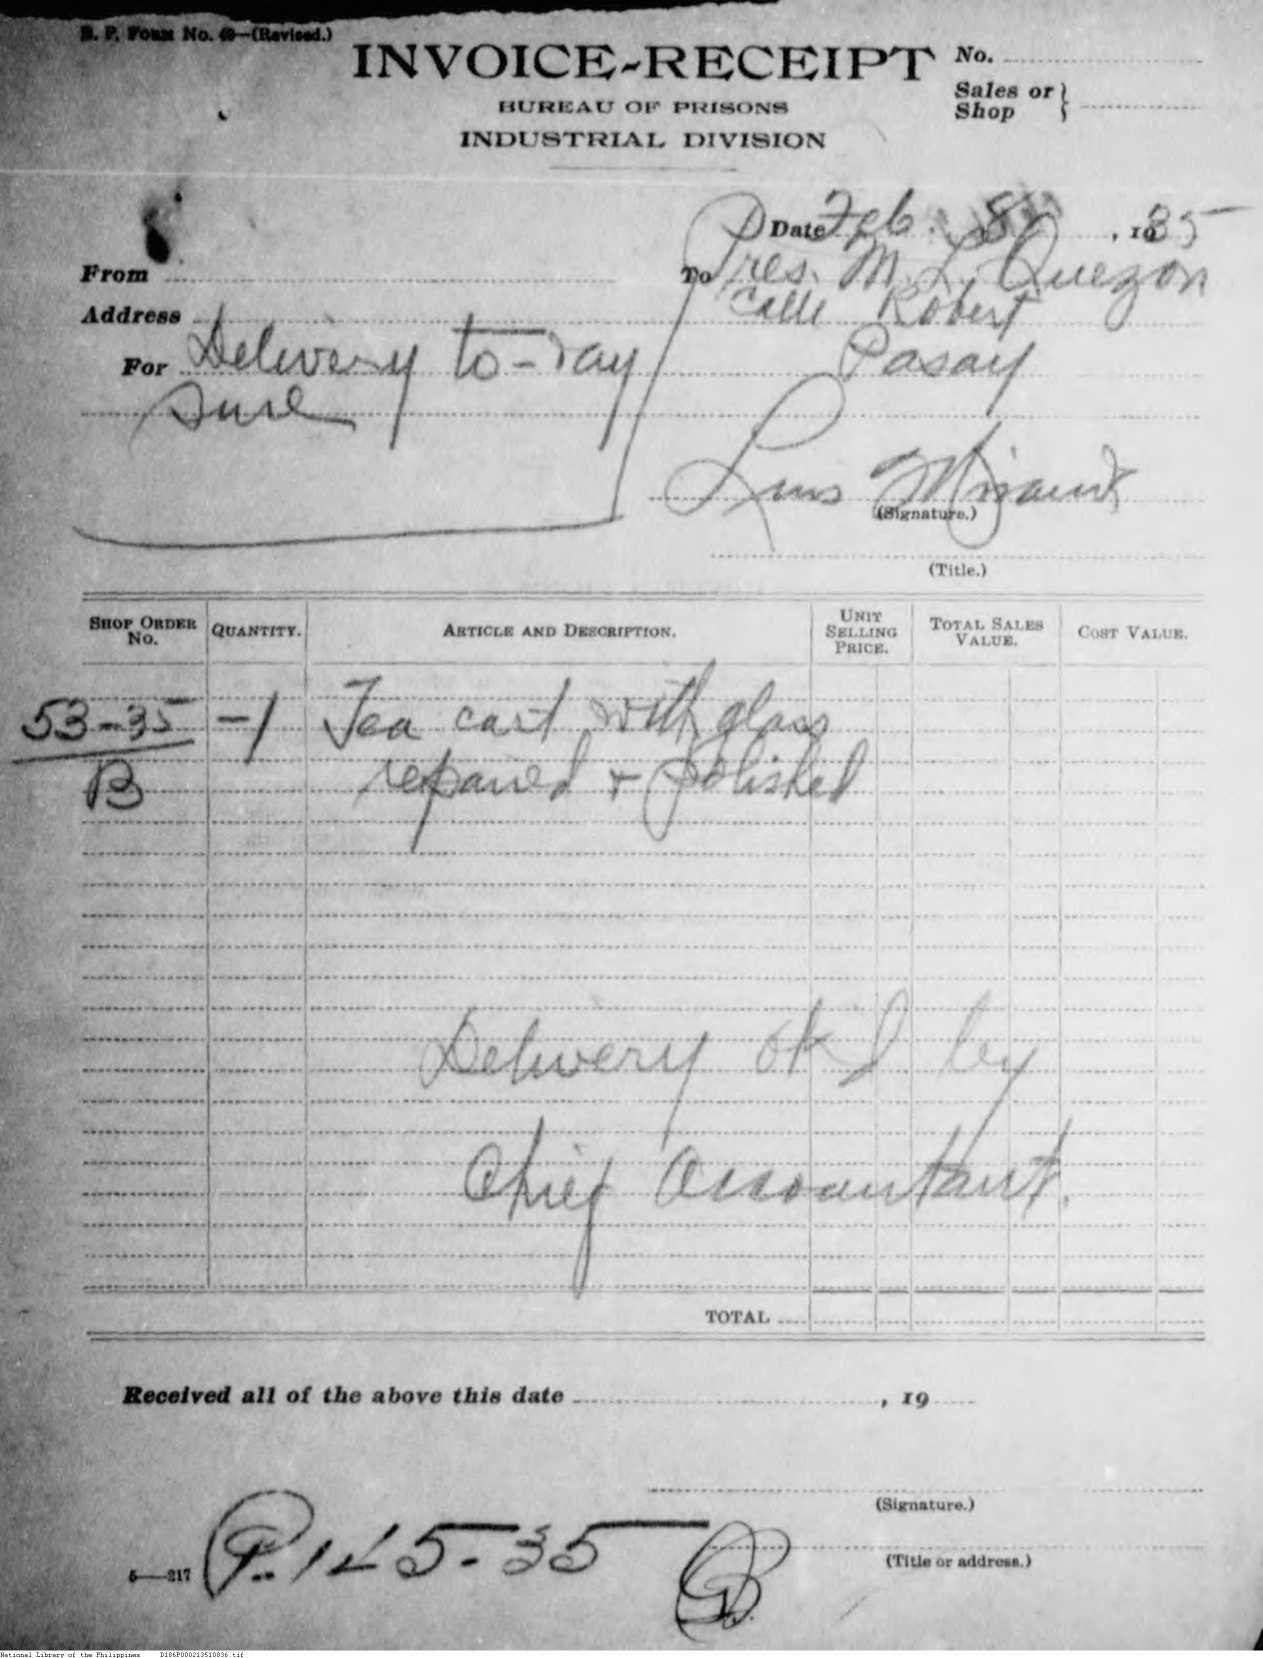 B. P. Form No. 49—(Revised.)
INVOICE-RECEIPT
No.
Sales or
Shop
BUREAU OF PRISONS
INDUSTRIAL DIVISION
Date Feb. 8, 1935
From
To Pres. M. L. Quezon
Address
Calle Robert
For Delivery to-day
Pasay
sure
Luis
(Signature.)
(Title.)
SHOP ORDER No. QUANTITY. ARTICLE AND DESCRIPTION. UNIT SELLING PRICE. TOTAL SALES VALUE. COST VALUE.
53-35 -1 Tea cart with glass
B repaired + polished
Delivery ok'd by
Chief Accountant.
TOTAL
Received all of the above this date , 19
(Signature.)
(Title or address.)
5—217
National Library of the Philippines D186P000213510836.tif